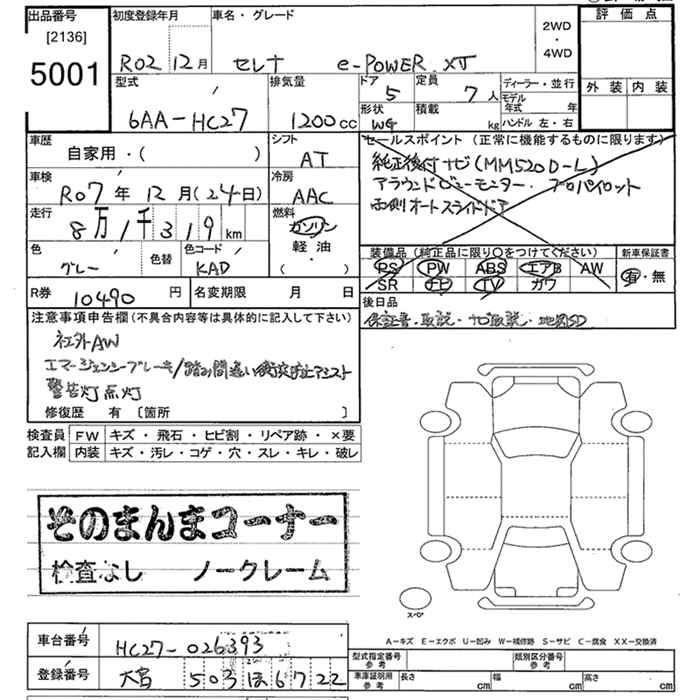 出品番号 初度登録年月 車名・グレード 評価点
[2136]
5001
R02 12月 セレナ e-POWER XV
2WD
・
4WD
型式 排気量 ドア 定員 ディーラー・並行 外装 内装
6AA-HC27 1200cc 5 7人
モデル年式 年
形状 積載 ハンドル 左・右
WG kg
車歴 シフト セールスポイント(正常に機能するものに限ります)
自家用・( ) AT
純正後付ナビ(MM520D-L)
アラウンドビューモニター・プロパイロット
両側オートスライドドア
車検 冷房
R07年 12月(24日) AAC
走行 燃料
8万1千319km ガソリン
軽油
・
( )
装備品(純正品に限り○をつけてください) 新車保証書
色 色替 色コード
グレー KAD
PS PW ABS エアB AW 有・無
SR ナビ TV ガワ
R券 10490円 名変期限 月 日
後日品
保証書・取説・ナビ取説・地図SD
注意事項申告欄(不具合内容等は具体的に記入して下さい)
社外AW
エマージェンシーブレーキ/踏み間違い衝突防止アシスト
警告灯点灯
修復歴 有 [箇所 ]
検査員 FW キズ・飛石・ヒビ割・リペア跡・×要
記入欄 内装 キズ・汚レ・コゲ・穴・スレ・キレ・破レ
そのまんまコーナー
検査なし ノークレーム
スペア
A-キズ E-エクボ U-凹み W-補修跡 S-サビ C-腐食 XX-交換済
車台番号 HC27-026393
型式指定番号 参考 類別区分番号 参考
登録番号 大宮 503 ほ 6722
車庫証明用 参考 長さ cm 幅 cm 高さ cm